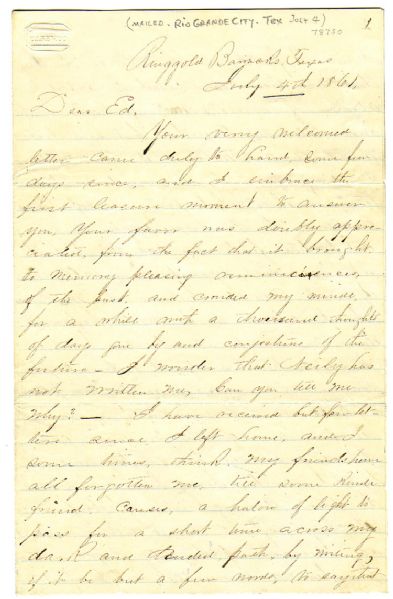 (MAILED - RIO GRANDE CITY. TEX JULY 4)
1
78750
Ringgold Barracks, Texas
July 4th 1861,
Dear Ed.
Your very welcomed
letter came duly to hand, some few
days since, and I embrace the
first leasure moment to answer
you, Your favor was doubly appre-
ciated, from the fact that it brought
to memory pleasing reminiscences
of the past, and crouded my minde
for a while with a thousand thoughts
of days gone by and conjectures of the
future - I wonder that has
not written me, Can you tell me
why? — I have received but few let-
ters since I left home, and I
some times, think, my friends have
all forgotten me, till some kinde
friend, causes, a halow of light to
pass for a short time across my
dark and path, by writing,
if it be but a few words, to say that